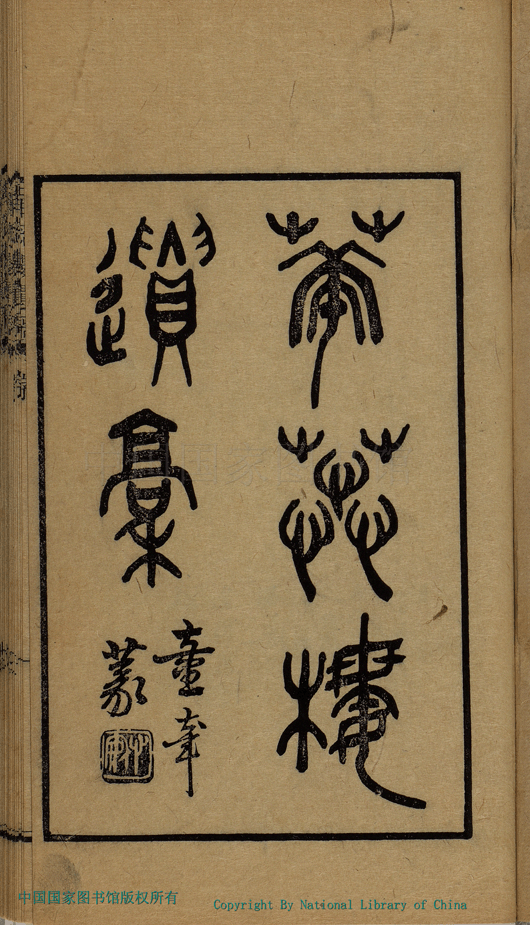 華蕊樓
遺稾
篆
中国国家图书馆版权所有
Copyright By National Library of China